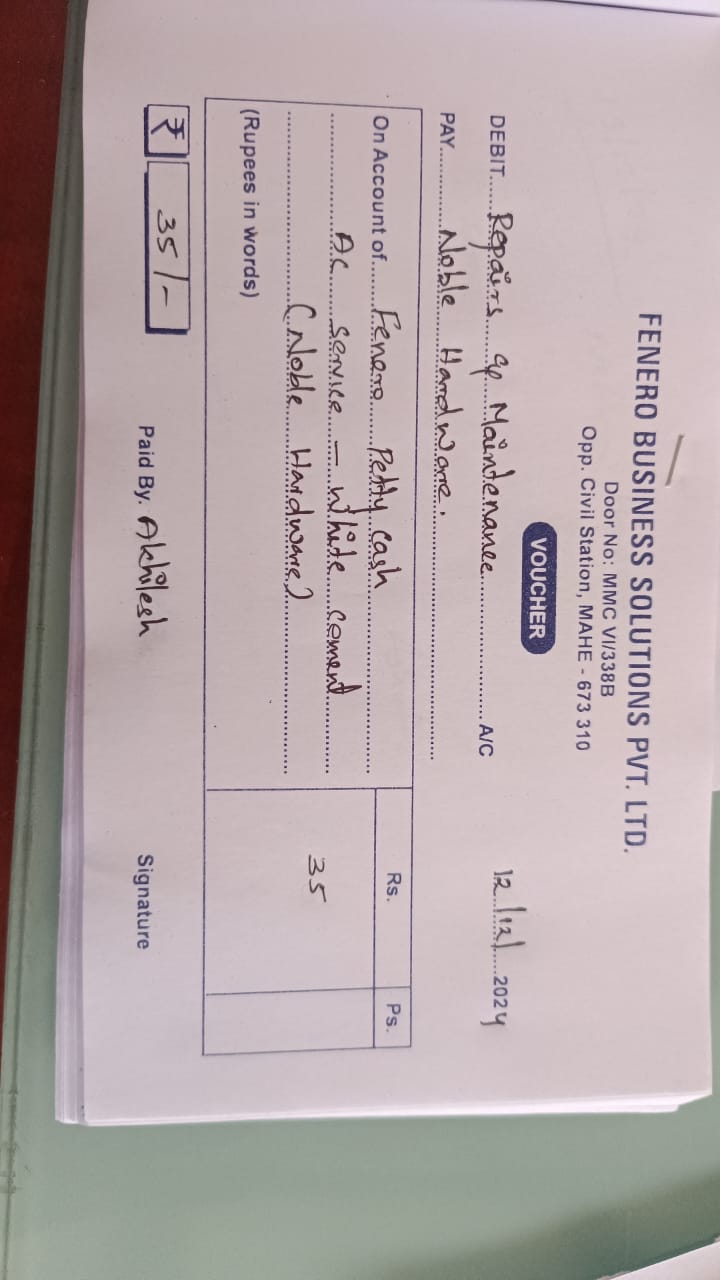 FENERO BUSINESS SOLUTIONS PVT. LTD.
Door No: MMC VI/338B
Opp. Civil Station, MAHE - 673 310
VOUCHER
12/12/2024
DEBIT Repairs & Maintenance A/C
PAY Noble Hardware.
Rs. Ps.
On Account of Fenero Petty cash
AC service - White cement
35
(Noble Hardware)
(Rupees in words)
₹ 35/-
Paid By. Akhilesh Signature